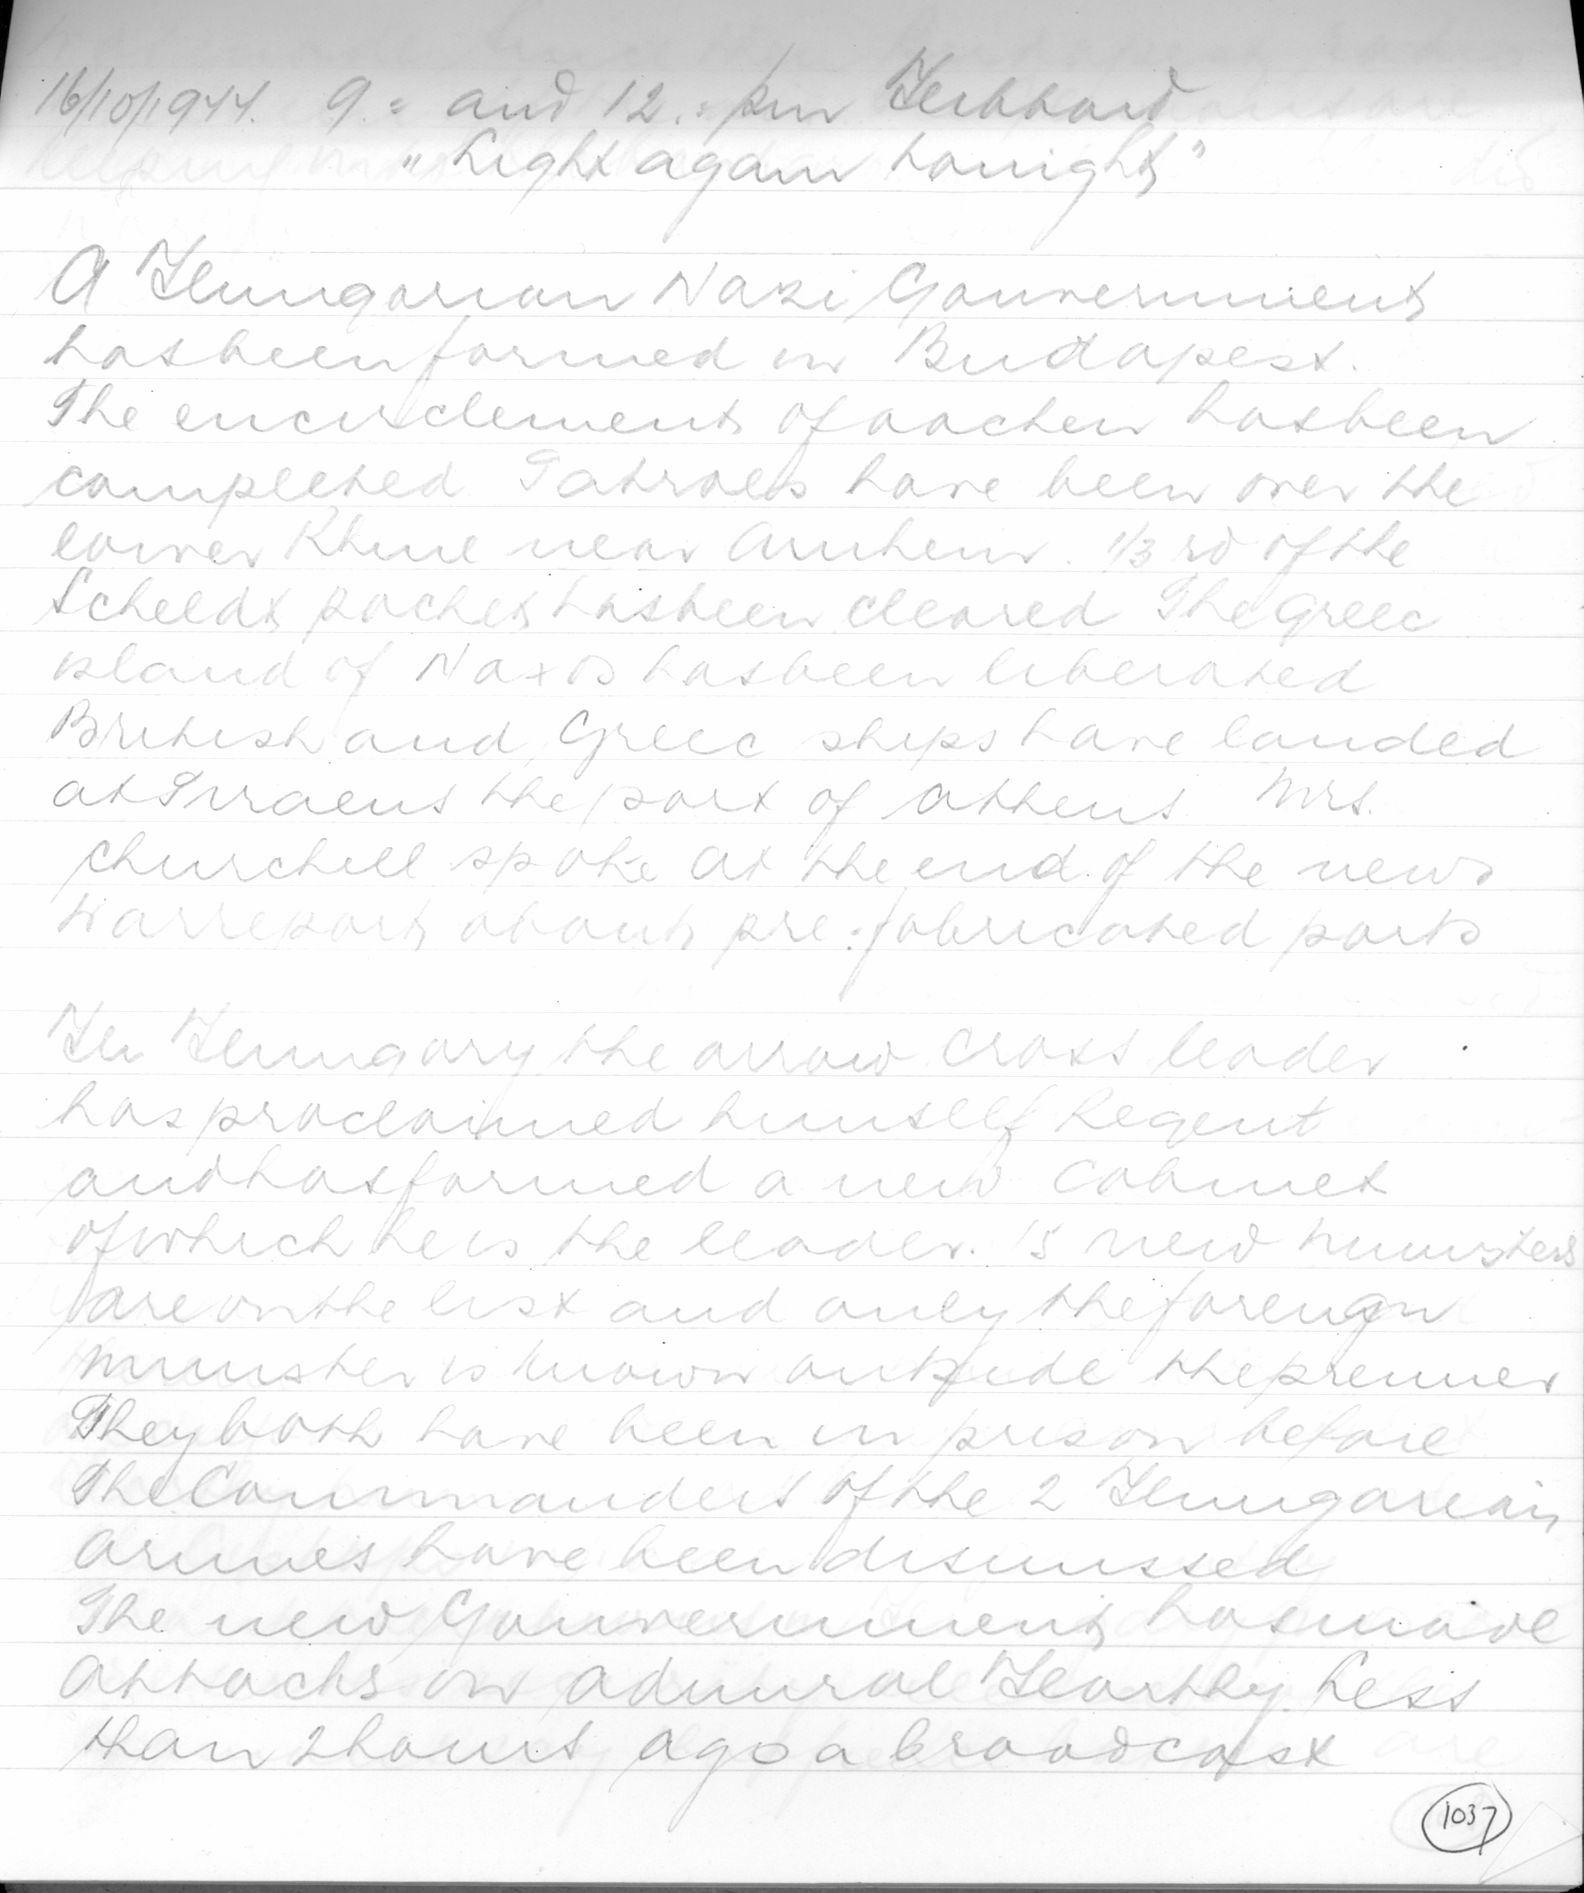 16/10/1944. 9.= and 12.= pm Hubbard
"Light again tonight"
A Hungarian Nazi Gouvernment
has been formed in Budapest.
The encirclement of aachen has been
completed Patroles have been over the
lower Rhine near Arnhem. 1/3 rd of the
Scheldt pocket has been cleared The Greec
island of Naxos has been liberated
British and Greec ships have landed
at Piraeus the port of Athens Mrs.
Churchill spoke at the end of the news
Warreport about pre:fabricated ports
In Hungary the arrow Cross leader
has proclaimed himself Regent
and has formed a new Cabinet
of which he is the leader. 15 new ministers
are on the list and only the foreign
minister is known outside the premier
They both have been in prison before
The Commanders of the 2 Hungarian
armies have been dismissed
The new Gouvernment has made
attacks on admiral Horthy. Less
than 2 hours ago a broadcast
1037